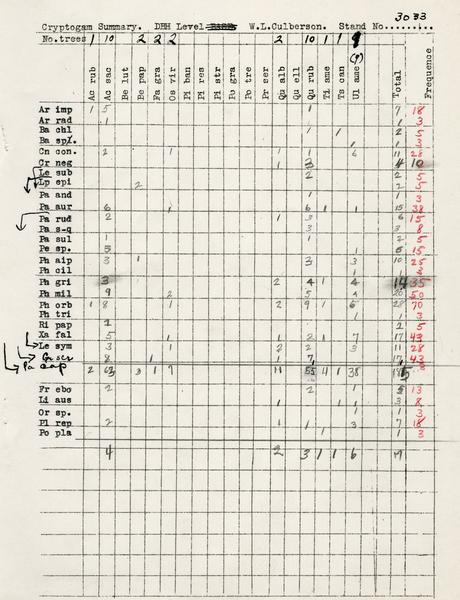 3033
Cryptogam Summary. DBH Level W.L.Culberson. Stand No........
No.trees 1 10 2 2 2 2 10 1 1 9
Ac rub Ac sac Be lut Be pap Fa gra Os vir Pi ban Pi res Pi str Po gra Po tre Pr ser Qu alb Qu ell Qu rub Ti ame Ts can Ul ame (P) Total Frequence
Ar imp 1 5 1 7 18
Ar rad 1 1 3
Ba chl 1 1 2 5
Ba sp1. 1 1 3
Cn con. 2 1 1 6 11 28
Cr neg 1 3 4 10
Le sub 2 2 5
Lp epi 2 2 5
Pa and 1 1 3
Pa aur 6 1 6 1 1 15 38
Pa rud 2 1 3 6 15
Pa s-q 3 3 8
Pa sul 1 1 2 5
Pe sp. 5 1 6 15
Ph aip 3 1 3 3 10 25
Ph cil 1 1 3
Ph gri 3 2 4 1 4 14 35
Ph mil 9 2 5 4 20 50
Ph orb 1 8 1 2 9 1 6 28 70
Ph tri 1 1 3
Ri pap 2 2 5
Xa fal 5 1 1 2 1 7 17 43
Le sym 3 1 2 2 3 11 28
Gr scr 8 1 1 7 17 43
Pa cap 2 63 3 1 9 11 55 4 1 38
Fr ebo 2 2 1 5 13
Li aus 1 1 1 3 8
Or sp. 1 1 3
Pl rep 2 1 1 3 7 18
Po pla 1 1 3
4 2 3 1 1 6 17